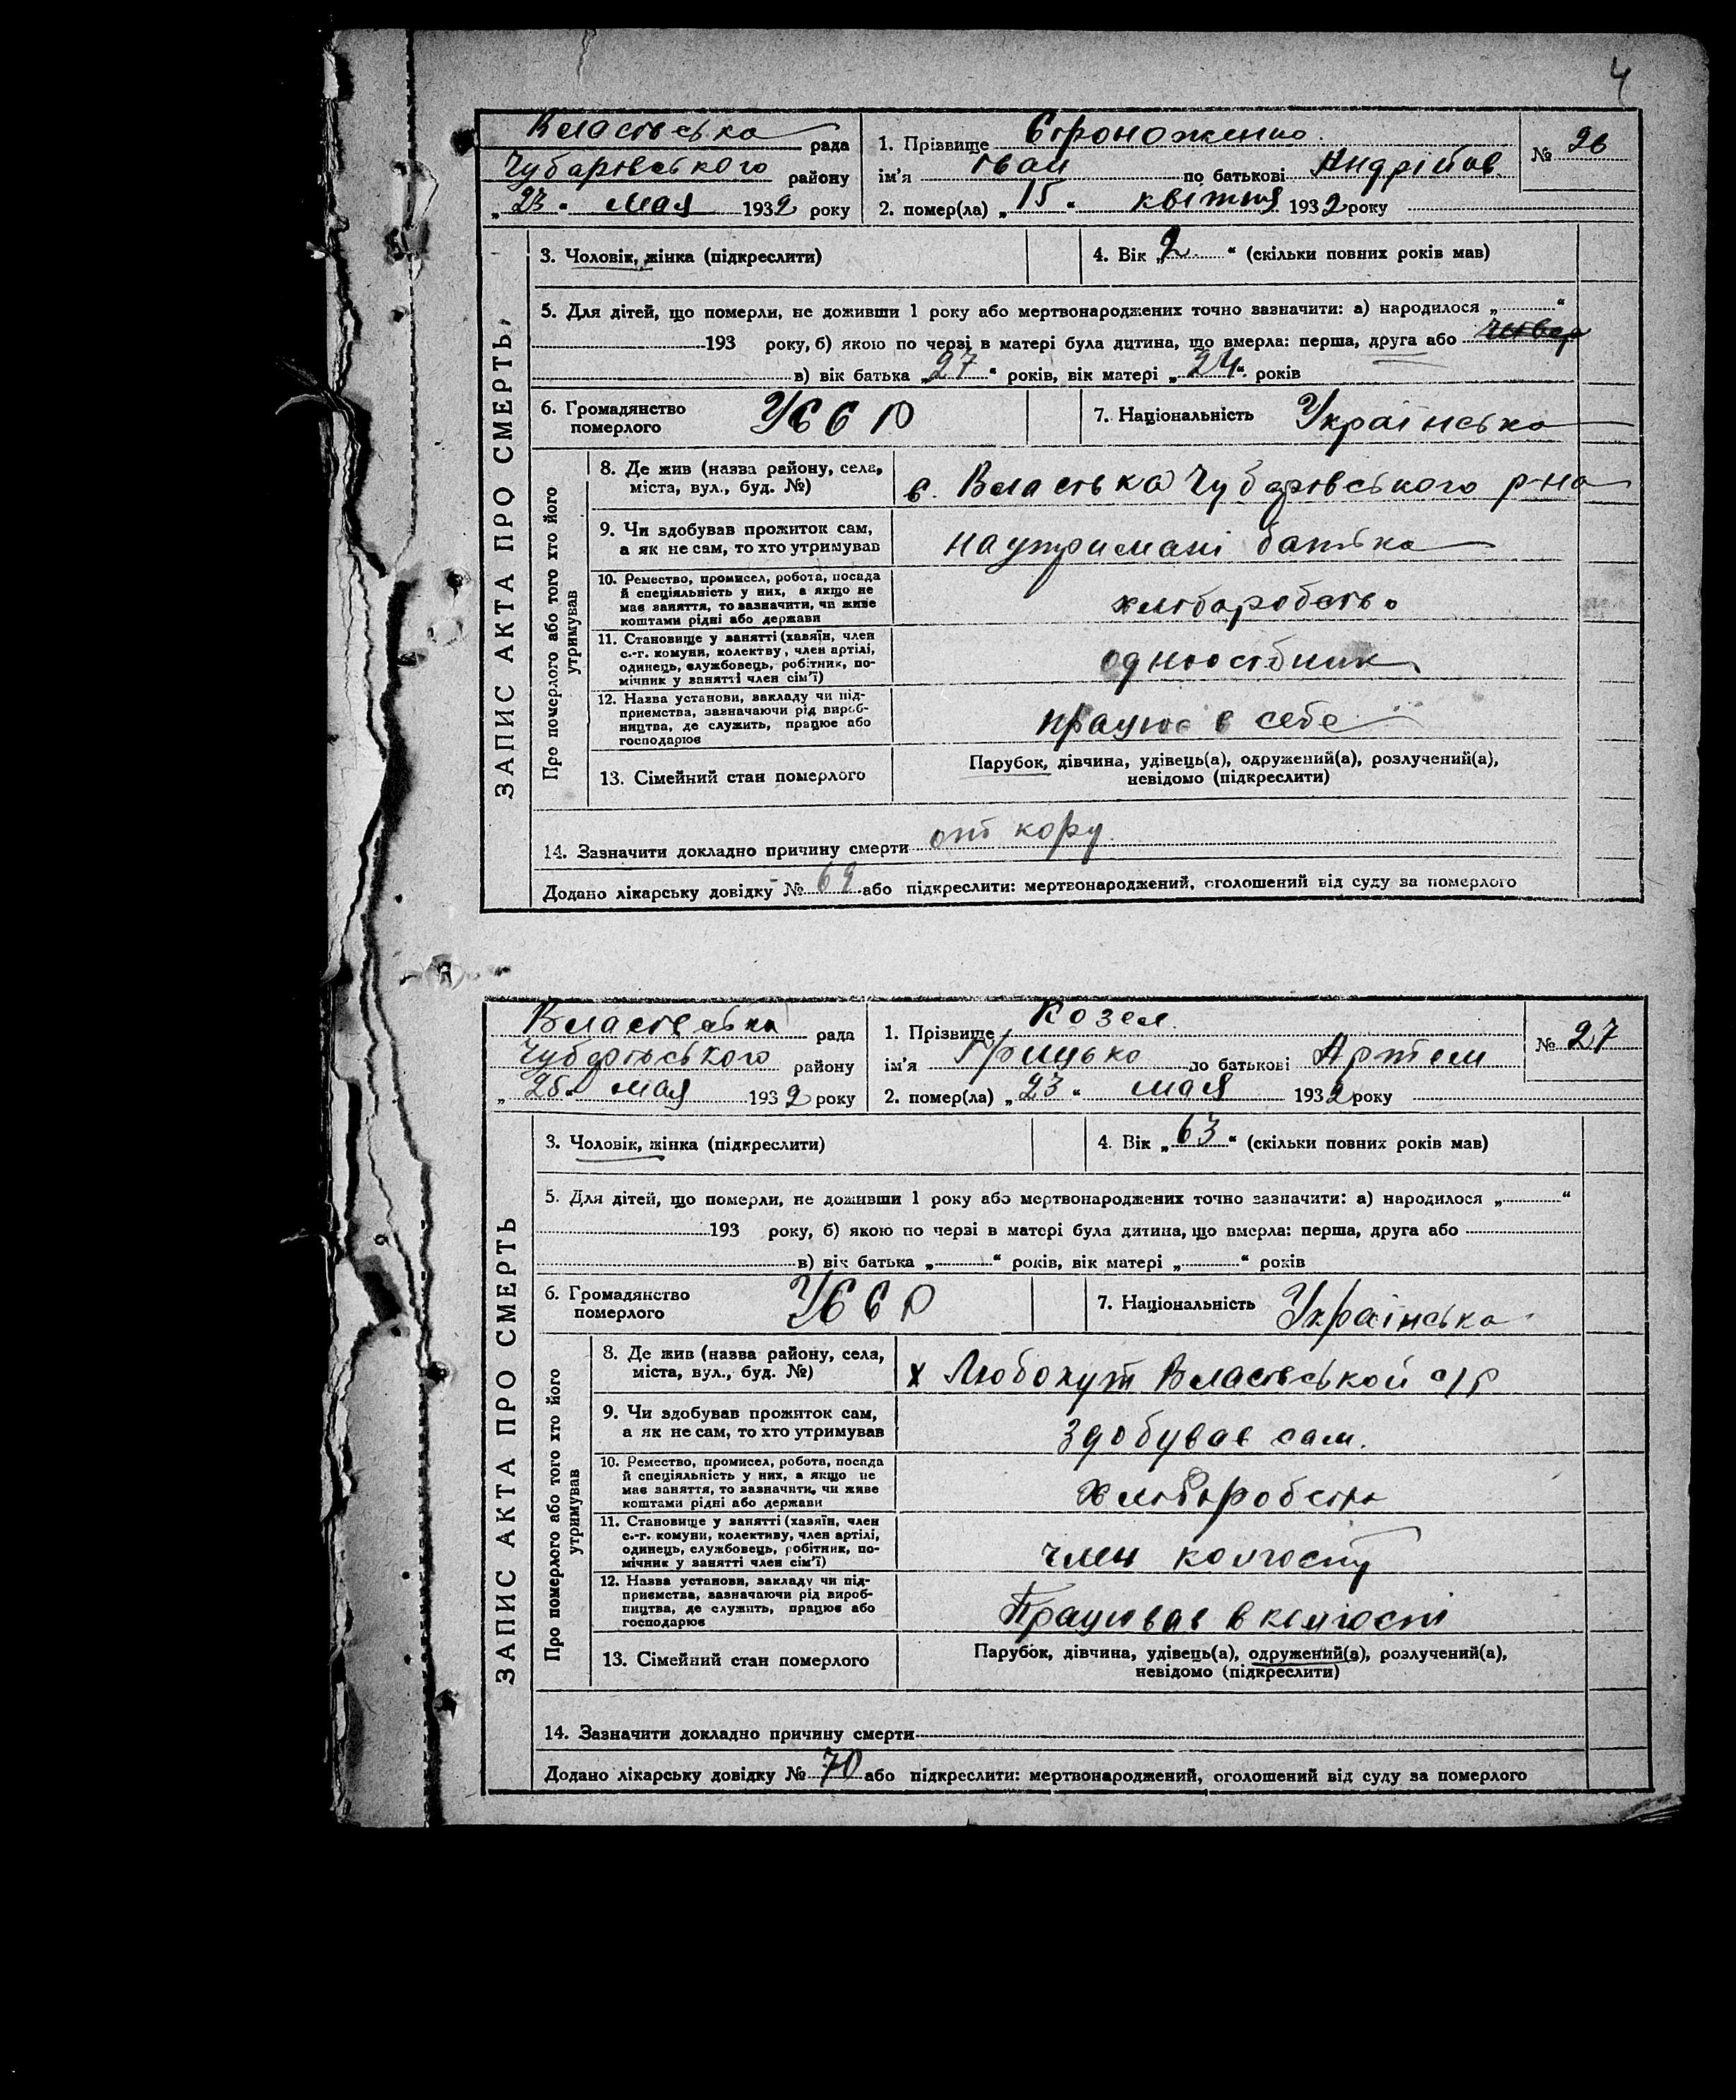 4
Властвська рада
Чубарівського району
„23" мая 1932 року
1. Прізвище Строноженко
ім'я Іван по батькові Андрійов.
№ 26
2. помер(ла) „15" квітня 1932 року
ЗАПИС АКТА ПРО СМЕРТЬ
3. Чоловік, жінка (підкреслити)
4. Вік „2" (скільки повних років мав)
5. Для дітей, що померли, не доживши 1 року або мертвонароджених точно зазначити: а) народилося „ "
193 року, б) якою по черзі в матері була дитина, що вмерла: перша, друга або
в) вік батька „27" років, вік матері „24" років
6. Громадянство померлого УССР
7. Національність Українська
Про померлого або того хто його утримував
8. Де жив (назва району, села,
міста, вул., буд. №)
с. Властвка Чубарівського р-на
9. Чи здобував прожиток сам,
а як не сам, то хто утримував
на утримані батька
10. Ремество, промисел, робота, посада
й спеціяльність у них, а якщо не
має заняття, то зазначити, чи живе
коштами рідні або держави
хліборобство
11. Становище у занятті (хазяїн, член
с.-г. комуни, колективу, член артілі,
одинець, службовець, робітник, по-
мічник у занятті член сім'ї)
одноосібник
12. Назва установи, закладу чи під-
приємства, зазначаючи рід вироб-
ництва, де служить, працює або
господарює
працює в себе
13. Сімейний стан померлого
Парубок, дівчина, удівець(а), одружений(а), розлучений(а),
невідомо (підкреслити)
14. Зазначити докладно причину смерти от кору
Додано лікарську довідку № 69 або підкреслити: мертвонароджений, оголошений від суду за померлого
Властвська рада
Чубарівського району
„25" мая 1932 року
1. Прізвище Козел
ім'я Грицько по батькові Артем
№ 27
2. помер(ла) „23" мая 1932 року
ЗАПИС АКТА ПРО СМЕРТЬ
3. Чоловік, жінка (підкреслити)
4. Вік „63" (скільки повних років мав)
5. Для дітей, що померли, не доживши 1 року або мертвонароджених точно зазначити: а) народилося „ "
193 року, б) якою по черзі в матері була дитина, що вмерла: перша, друга або
в) вік батька „ " років, вік матері „ " років
6. Громадянство померлого УССР
7. Національність Українська
Про померлого або того хто його утримував
8. Де жив (назва району, села,
міста, вул., буд. №)
х Любохут Властвськой с/р
9. Чи здобував прожиток сам,
а як не сам, то хто утримував
Здобував сам.
10. Ремество, промисел, робота, посада
й спеціяльність у них, а якщо не
має заняття, то зазначити, чи живе
коштами рідні або держави
Хліборобство
11. Становище у занятті (хазяїн, член
с.-г. комуни, колективу, член артілі,
одинець, службовець, робітник, по-
мічник у занятті член сім'ї)
член колгоспу
12. Назва установи, закладу чи під-
приємства, зазначаючи рід вироб-
ництва, де служить, працює або
господарює
Працював в колгоспі
13. Сімейний стан померлого
Парубок, дівчина, удівець(а), одружений(а), розлучений(а),
невідомо (підкреслити)
14. Зазначити докладно причину смерти
Додано лікарську довідку № 70 або підкреслити: мертвонароджений, оголошений від суду за померлого